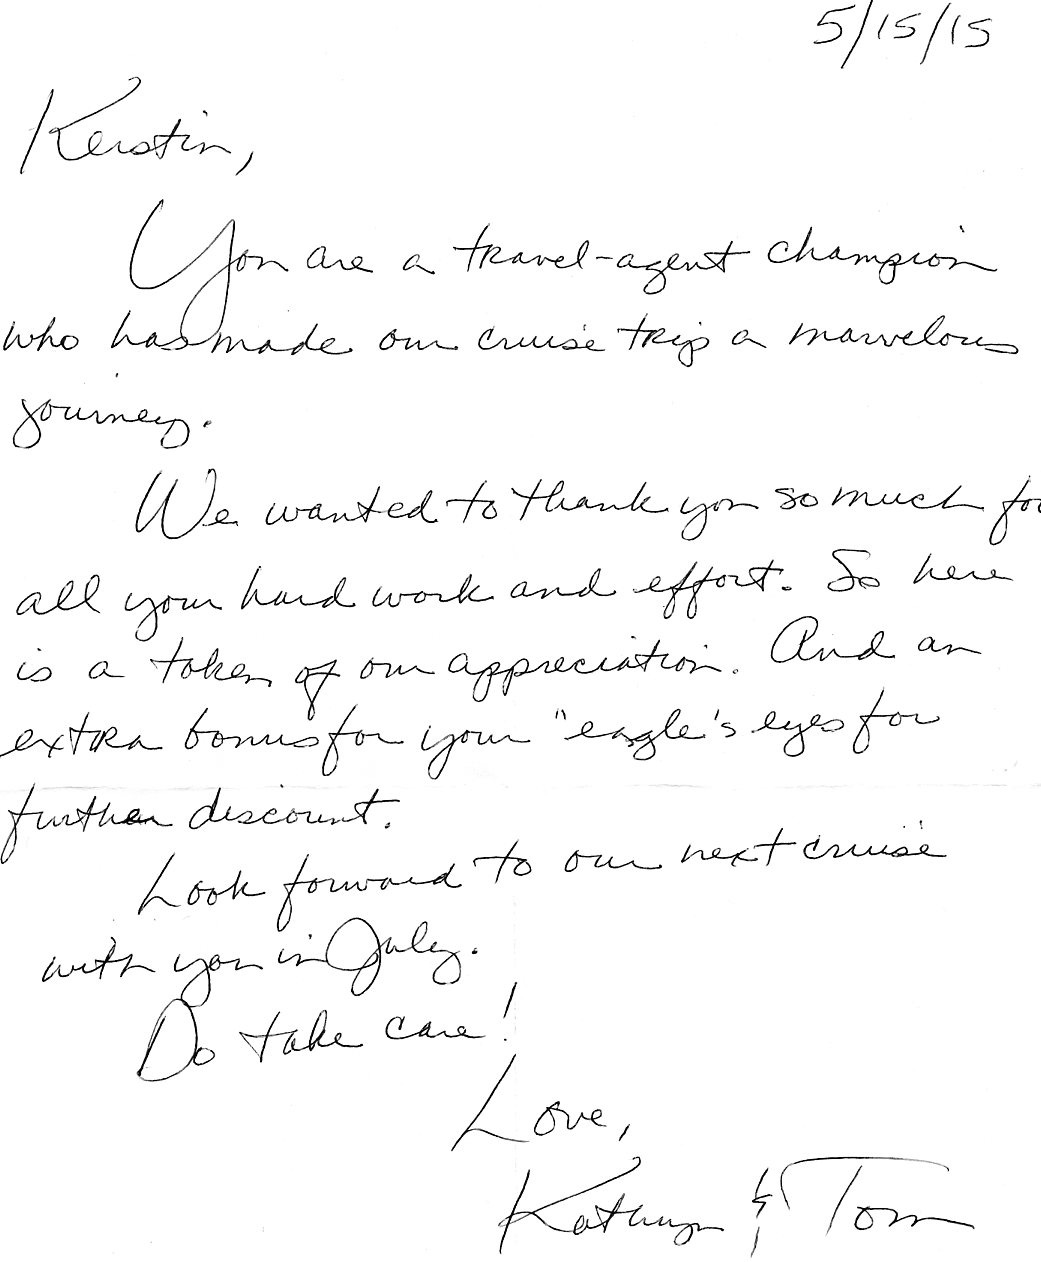 5/15/15
Kerstin,
You are a travel-agent champion
who has made our cruise trip a marvelous
journey.
We wanted to thank you so much for
all your hard work and effort. So here
is a token of our appreciation. And an
extra bonus for your "eagle's eyes for
further discount.
Look forward to our next cruise
with you in July.
Do take care!
Love,
Kathryn & Tom